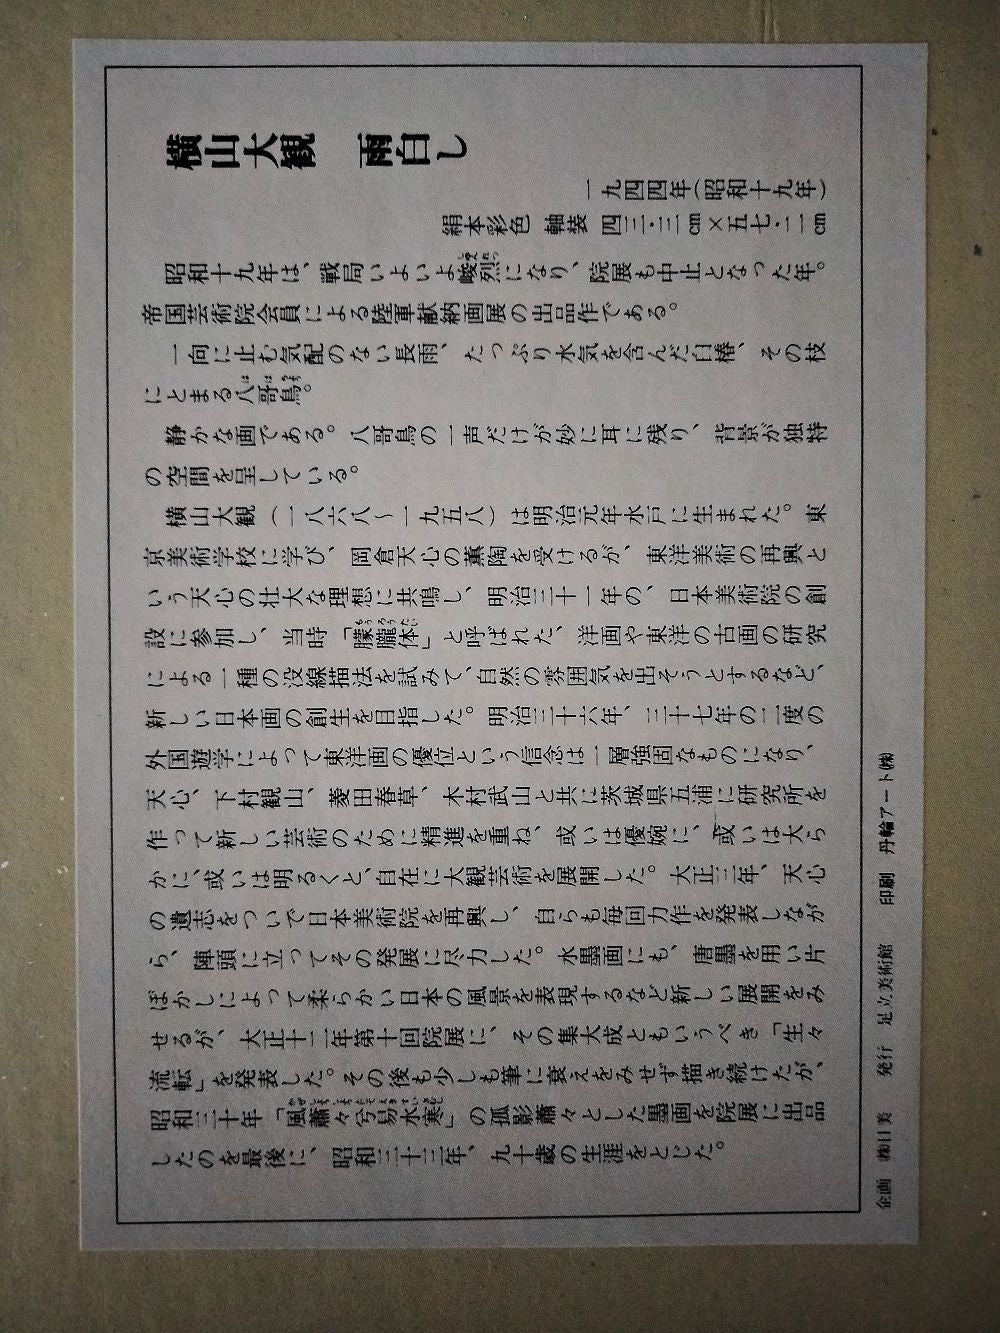 横山大観　雨白し
一九四四年(昭和十九年)
絹本彩色　軸装　四三・三cm×五七・二cm
昭和十九年は、戦局いよいよ峻烈になり、院展も中止となった年。
帝国芸術院会員による陸軍献納画展の出品作である。
一向に止む気配のない長雨、たっぷり水気を含んだ白椿、その枝
にとまる八哥鳥。
静かな画である。八哥鳥の一声だけが妙に耳に残り、背景が独特
の空間を呈している。
横山大観(一八六八〜一九五八)は明治元年水戸に生まれた。東
京美術学校に学び、岡倉天心の薫陶を受けるが、東洋美術の再興と
いう天心の壮大な理想に共鳴し、明治三十一年の、日本美術院の創
設に参加し、当時「朦朧体」と呼ばれた、洋画や東洋の古画の研究
による一種の没線描法を試みて、自然の雰囲気を出そうとするなど、
新しい日本画の創生を目指した。明治三十六年、三十七年の二度の
外国遊学によって東洋画の優位という信念は一層強固なものになり、
天心、下村観山、菱田春草、木村武山と共に茨城県五浦に研究所を
作って新しい芸術のために精進を重ね、或いは優婉に、或いは大ら
かに、或いは明るくと、自在に大観芸術を展開した。大正三年、天心
の遺志をついで日本美術院を再興し、自らも毎回力作を発表しなが
ら、陣頭に立ってその発展に尽力した。水墨画にも、唐墨を用い片
ぼかしによって柔らかい日本の風景を表現するなど新しい展開をみ
せるが、大正十二年第十回院展に、その集大成ともいうべき「生々
流転」を発表した。その後も少しも筆に衰えをみせず描き続けたが、
昭和三十年「風蕭々兮易水寒」の孤影蕭々とした墨画を院展に出品
したのを最後に、昭和三十三年、九十歳の生涯をとじた。
企画　㈱日美　発行　足立美術館　印刷　丹輪アート㈱